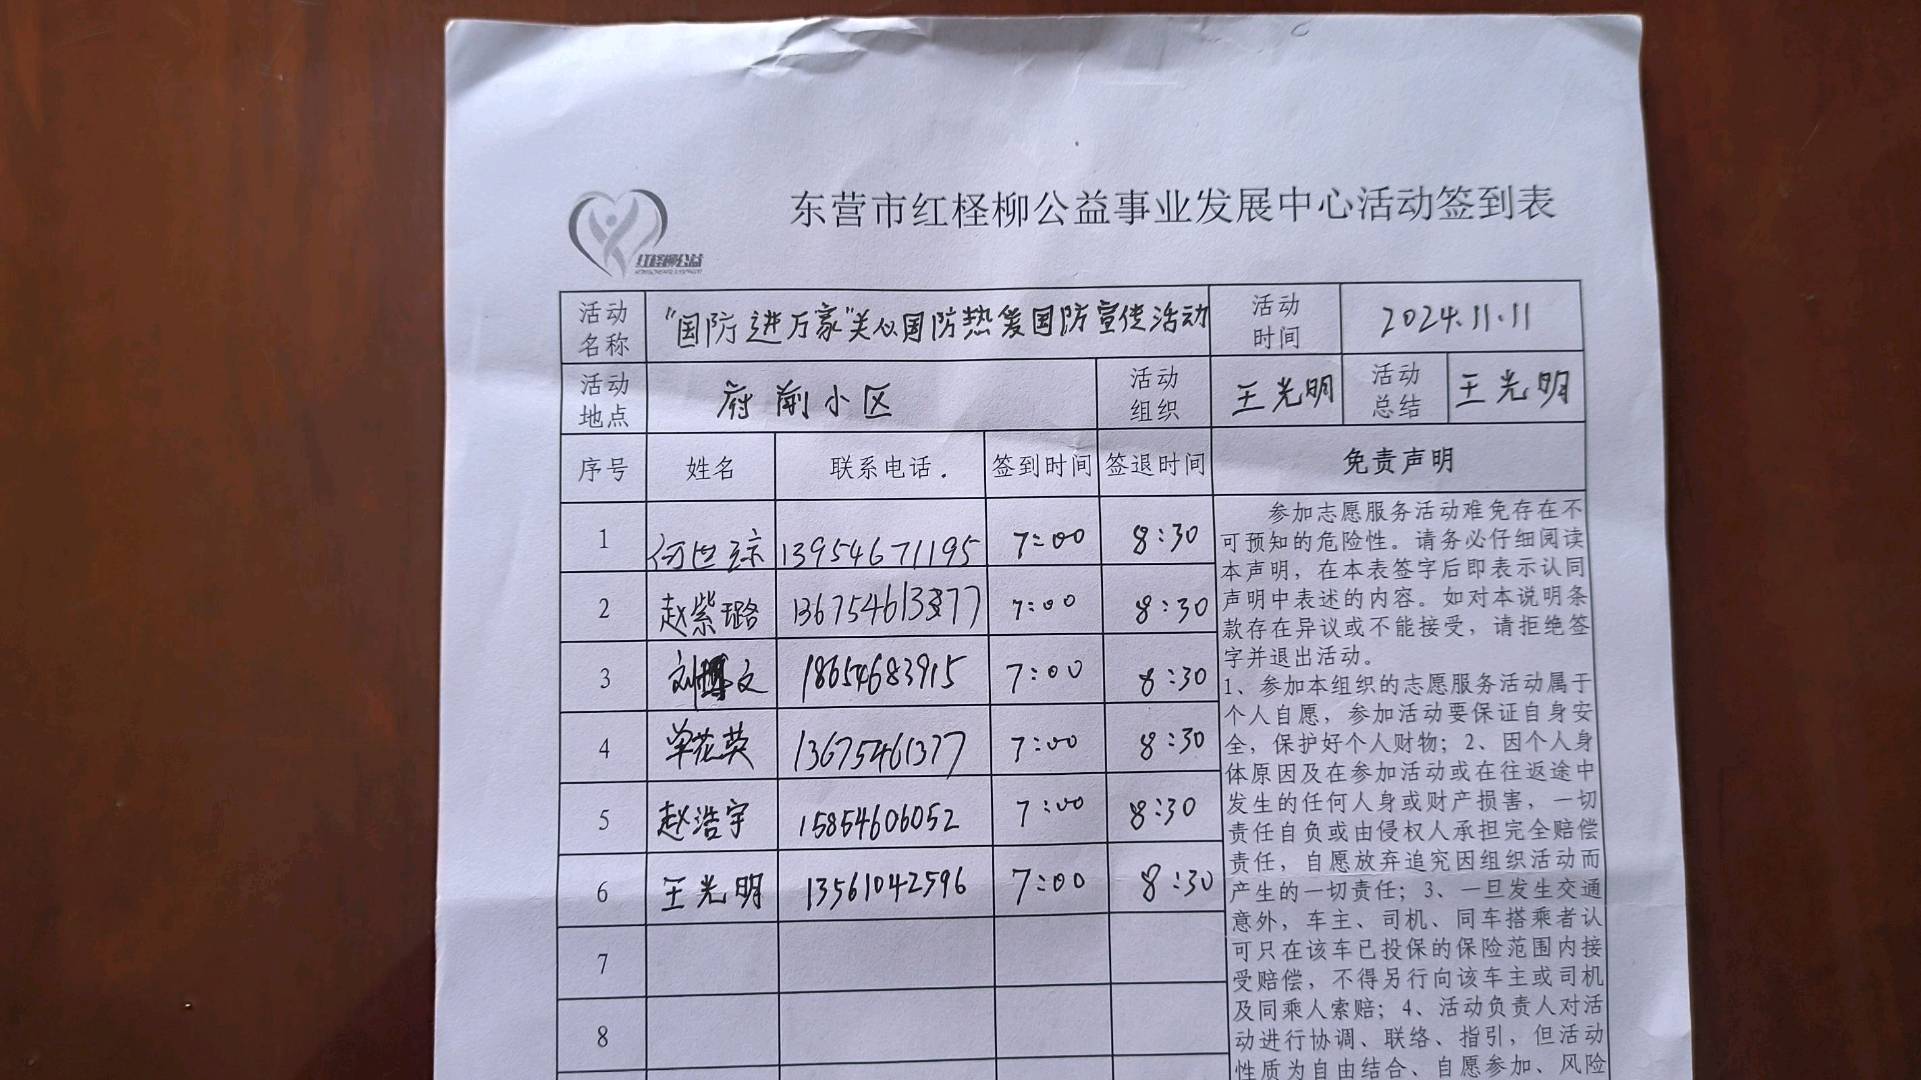 东营市红柽柳公益事业发展中心活动签到表
红柽柳公益
活动名称 "国防进万家"关心国防热爱国防宣传活动 活动时间 2024.11.11
活动地点 府前小区 活动组织 王光明 活动总结 王光明
序号 姓名 联系电话. 签到时间 签退时间 免责声明
1 何世琼 13954671195 7:00 8:30
2 赵紫璐 7:00 8:30
3 刘 文 18654683915 7:00 8:30
4 单花英 13675461377 7:00 8:30
5 赵浩宇 15854606052 7:00 8:30
6 王光明 13561042596 7:00 8:30
7
8
参加志愿服务活动难免存在不
可预知的危险性。请务必仔细阅读
本声明，在本表签字后即表示认同
声明中表述的内容。如对本说明条
款存在异议或不能接受，请拒绝签
字并退出活动。
1、参加本组织的志愿服务活动属于
个人自愿，参加活动要保证自身安
全，保护好个人财物；2、因个人身
体原因及在参加活动或在往返途中
发生的任何人身或财产损害，一切
责任自负或由侵权人承担完全赔偿
责任，自愿放弃追究因组织活动而
产生的一切责任；3、一旦发生交通
意外，车主、司机、同车搭乘者认
可只在该车已投保的保险范围内接
受赔偿，不得另行向该车主或司机
及同乘人索赔；4、活动负责人对活
动进行协调、联络、指引，但活动
性质为自由结合、自愿参加、风险